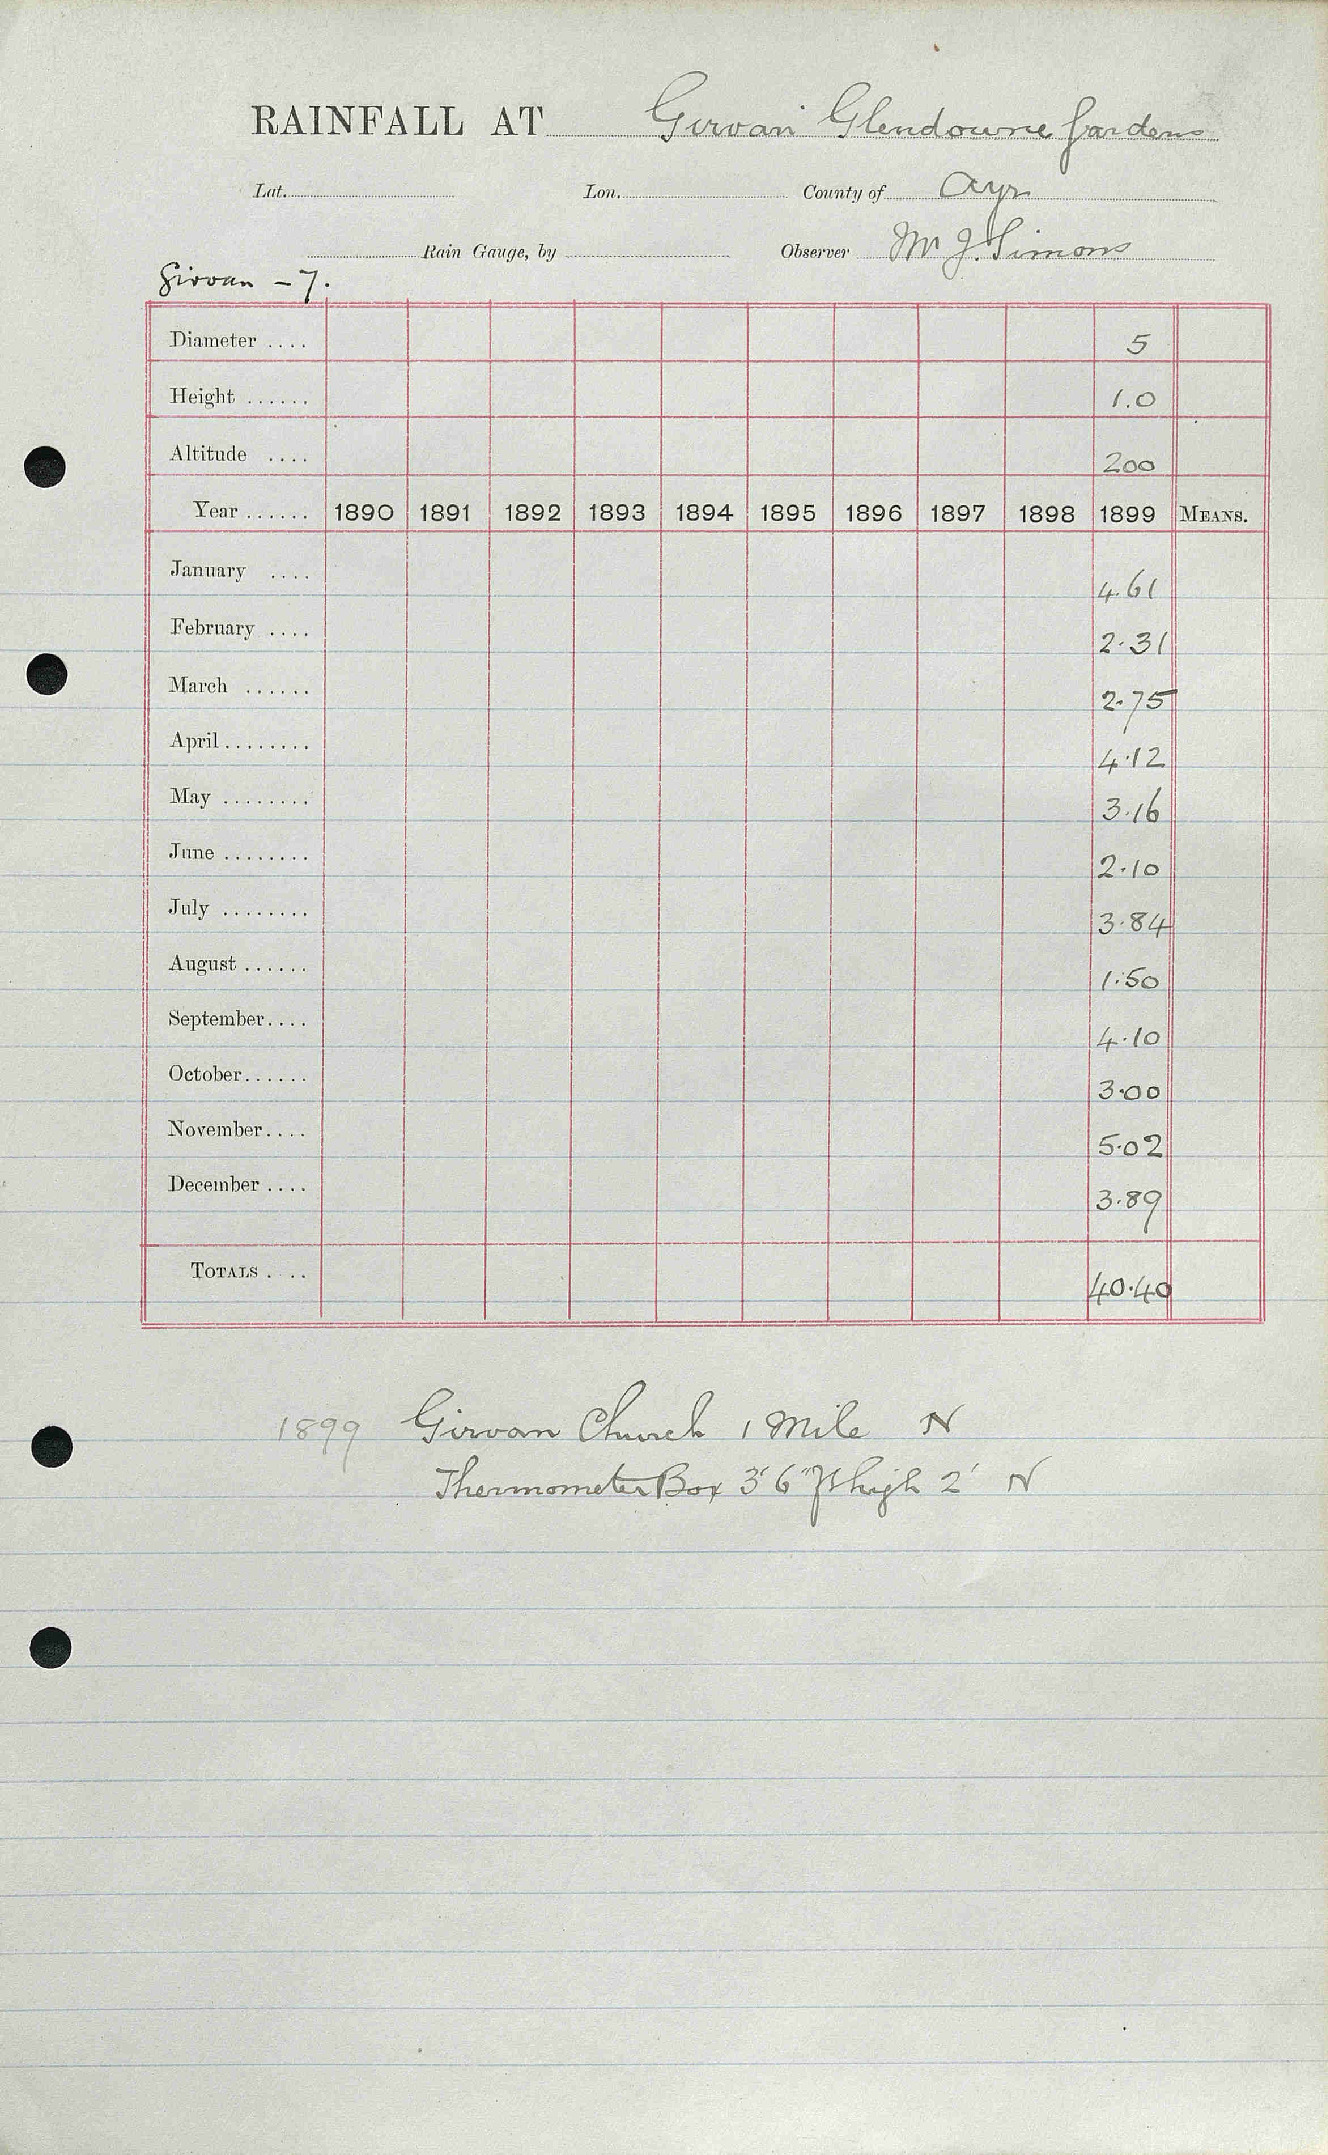 RAINFALL AT Girvan Glendoune Gardens
Lat. Lon. County of Ayr
Rain Gauge, by Observer Mr J. Simons
Girvan - 7.
Diameter .... 5
Height ...... 1.0
Altitude .... 200
Year ...... 1890 1891 1892 1893 1894 1895 1896 1897 1898 1899 MEANS.
January .... 4.61
February .... 2.31
March ...... 2.75
April ........ 4.12
May ........ 3.16
June ........ 2.10
July ........ 3.84
August ...... 1.50
September.... 4.10
October...... 3.00
November.... 5.02
December .... 3.89
TOTALS .... 40.40
1899 Girvan Church 1 Mile N
Thermometer Box 3' 6" high 2' N